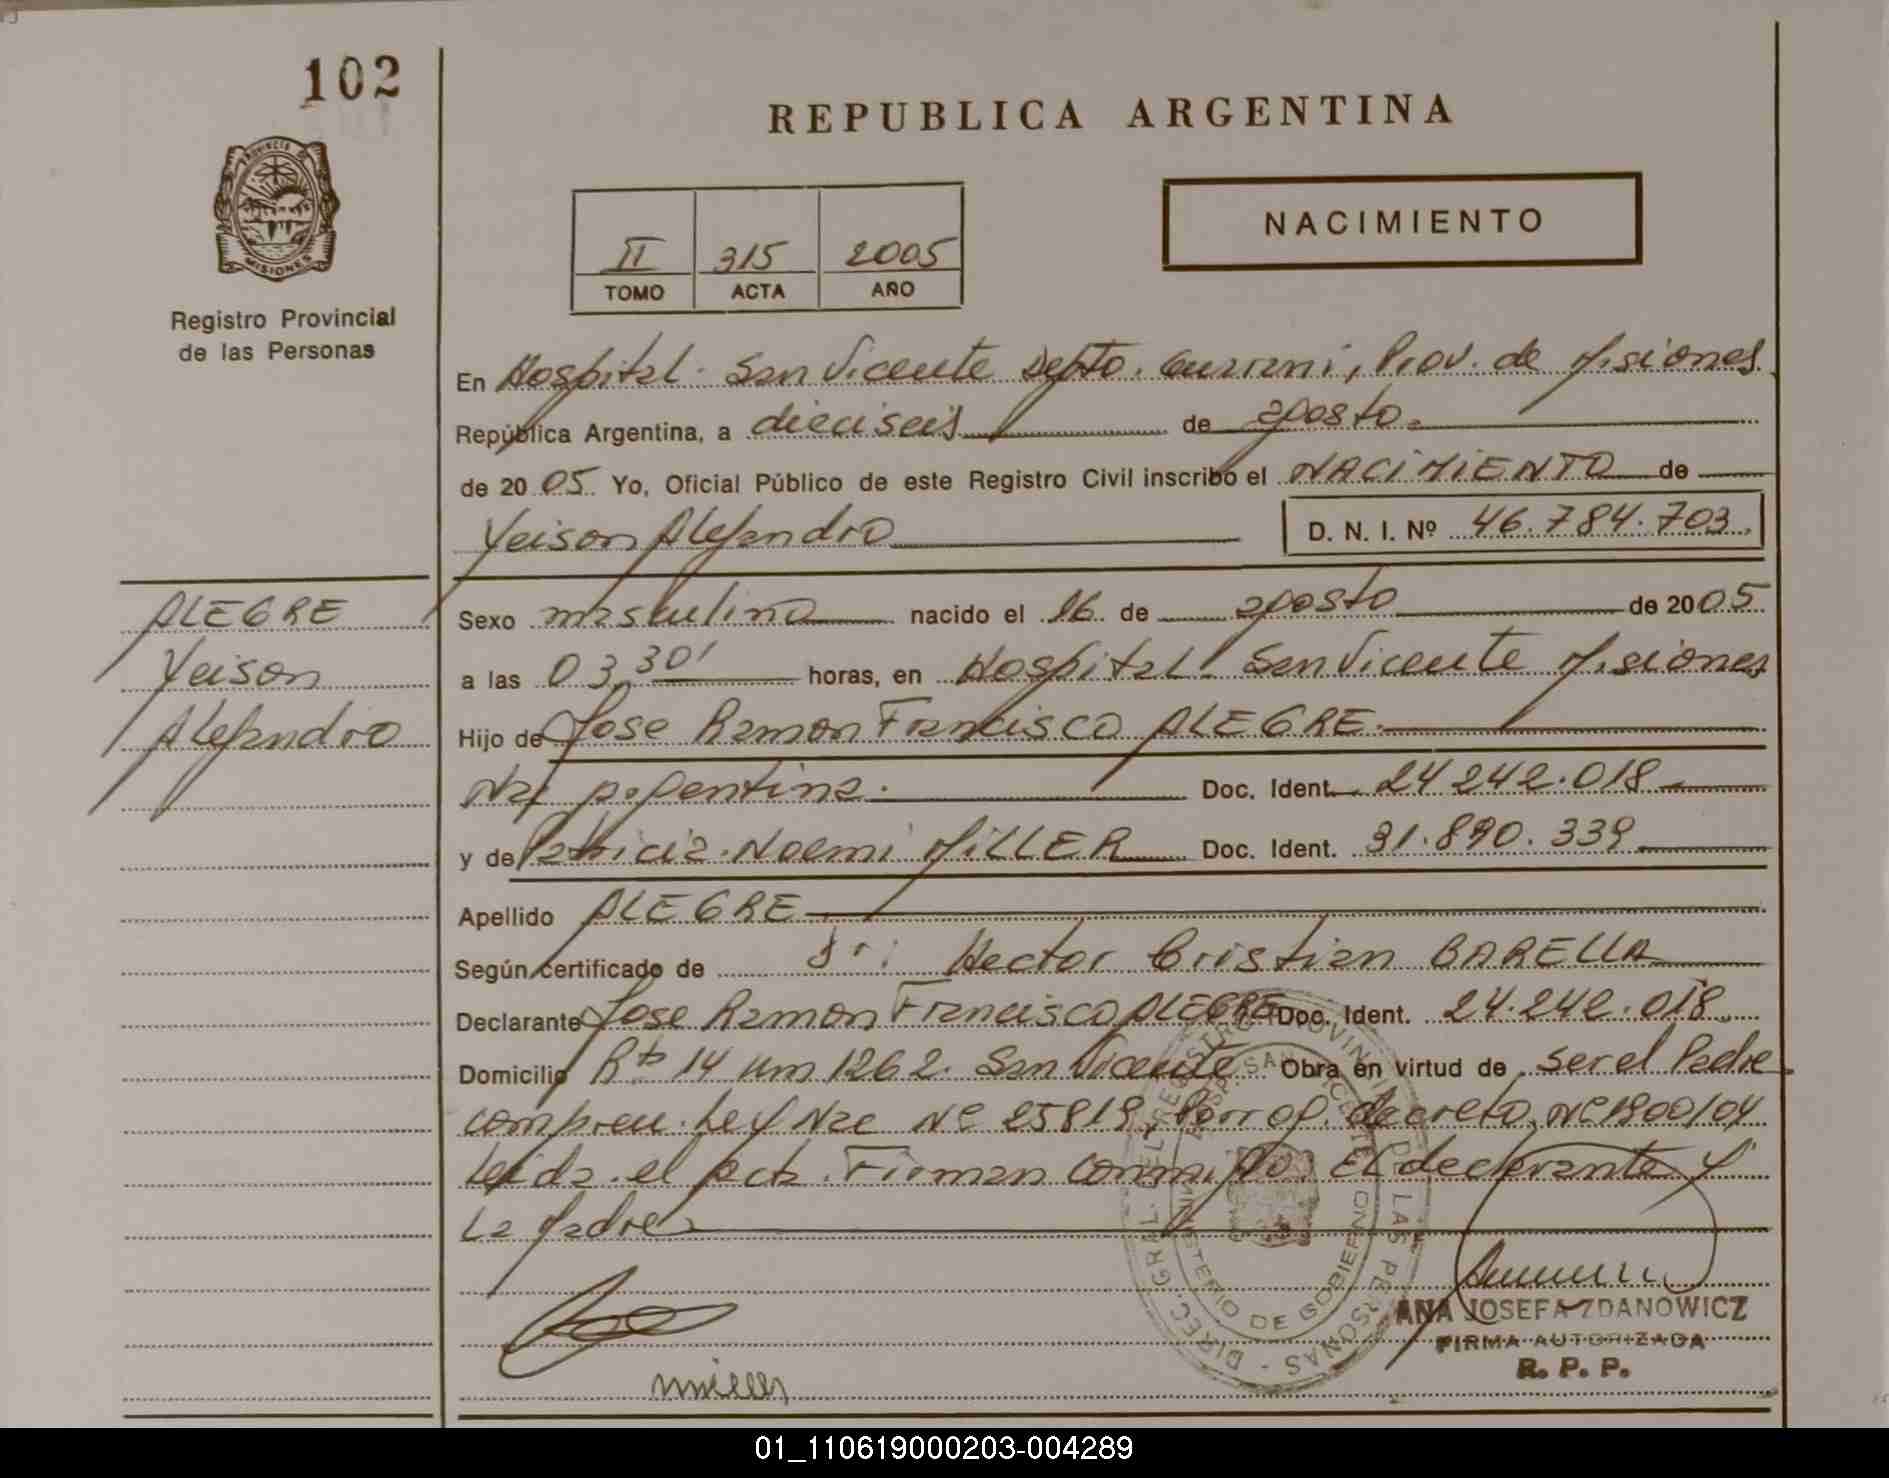 102
REPUBLICA ARGENTINA
PROVINCIA DE
MISIONES
Registro Provincial
de las Personas
II 315 2005
TOMO ACTA AÑO
NACIMIENTO
En Hospital. San Vicente Depto. Guarani, Prov. de Misiones
República Argentina, a dieciseis de agosto.
de 2005. Yo, Oficial Público de este Registro Civil inscribo el NACIMIENTO de
Yeison Alejandro D. N. I. Nº 46.784.703.
ALEGRE
Yeison
Alejandro
Sexo masculino nacido el 16 de agosto de 2005
a las 03,30' horas, en Hospital. San Vicente Misiones
Hijo de Jose Ramon Francisco ALEGRE.
Nac Argentina. Doc. Ident. 24 242.018
y de Patricia Noemi MILLER Doc. Ident. 31.890.339
Apellido ALEGRE
Según certificado de Dr: Hector Cristian BARELLA
Declarante Jose Ramon Francisco ALEGRE Doc. Ident. 24.242.018.
Domicilio Rta 14 Km 1262. San Vicente Obra en virtud de ser el Padre
Ley Nac Nº 25819, Prorrog. decreto, Nº 1900/04
Leida el acta. Firman conmigo. El declarante y
La Madre
DIREC. GRAL. DEL REGISTRO PROVINCIAL DE LAS PERSONAS
MINISTERIO DE GOBIERNO
HOSP. SAN VICENTE
miller
ANA JOSEFA ZDANOWICZ
FIRMA AUTORIZADA
R. P. P.
01_110619000203-004289